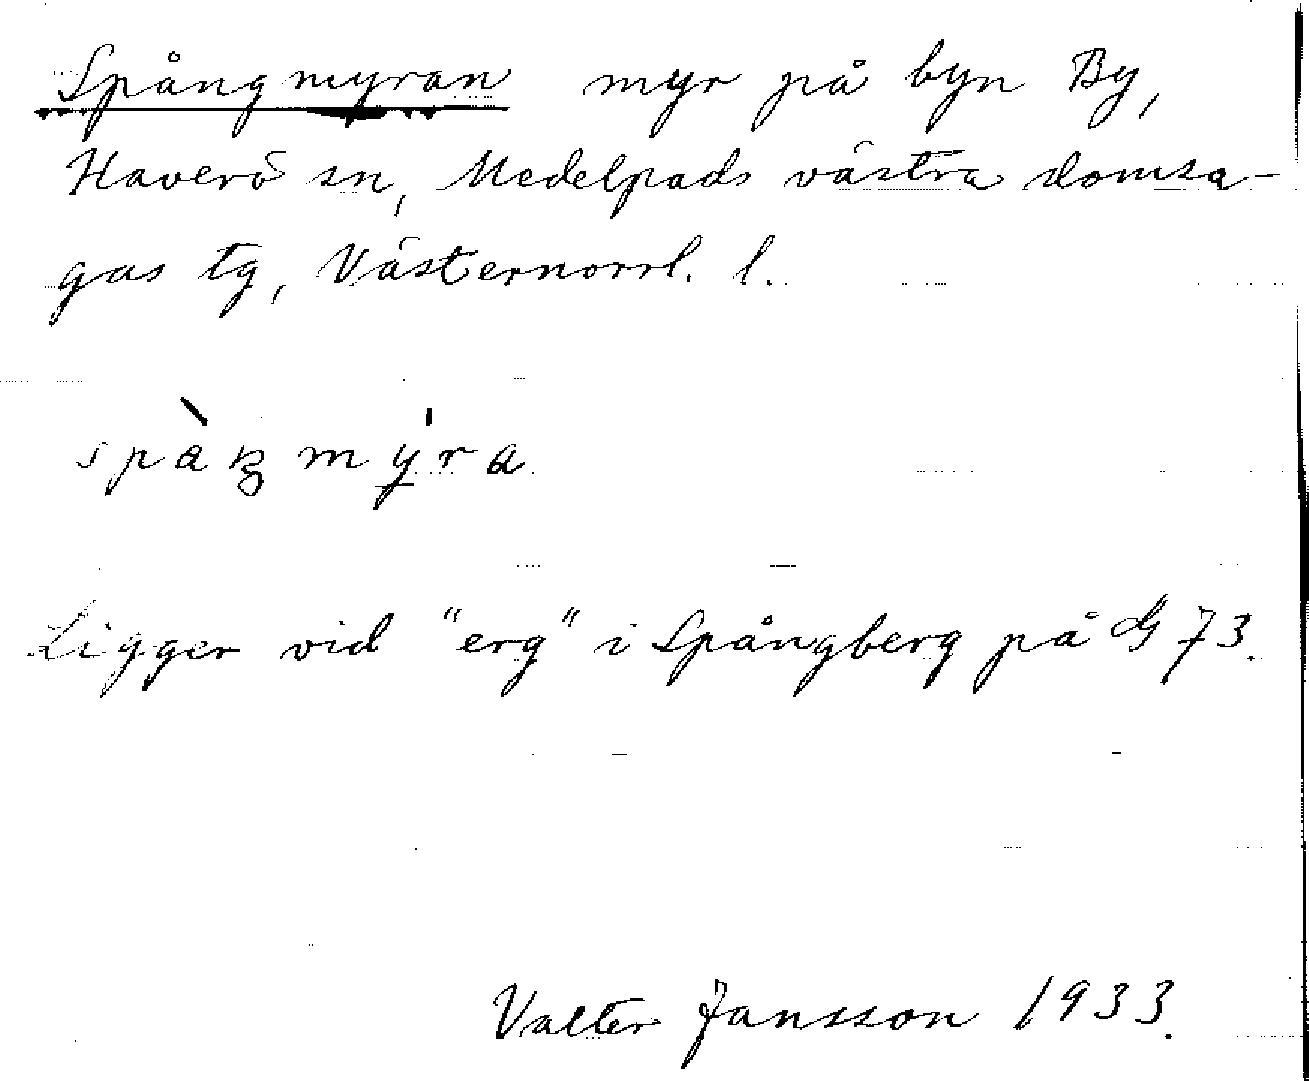 Spångmyran myr på byn By,
Haverö sn, Medelpads västra domsa-
gas tg, Västernorrl. l.
spàŋmý̲ra
Ligger vid "erg" i Spångberg på G 73.
Valter Jansson 1933.